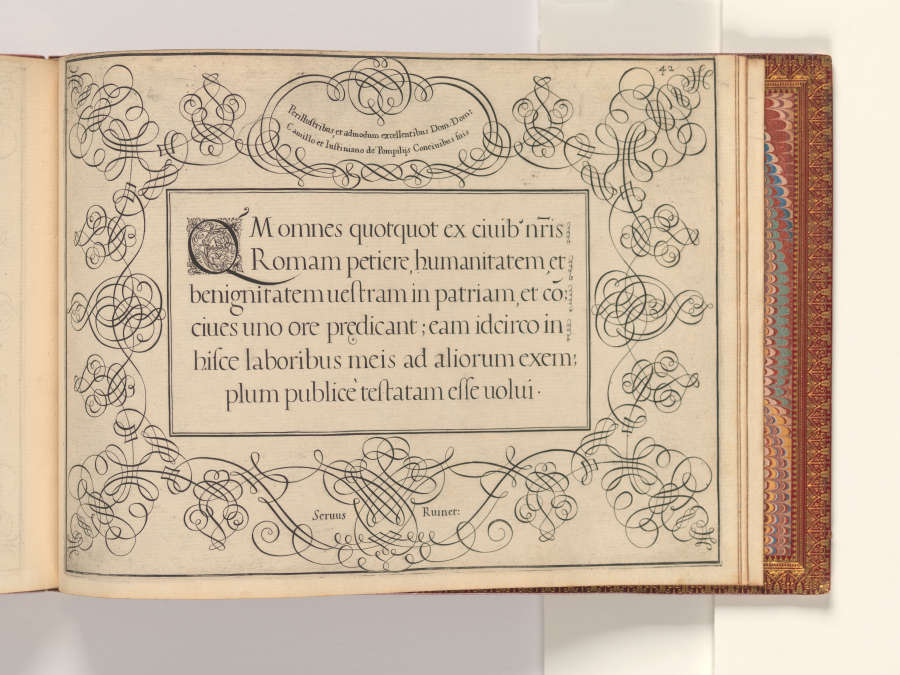 42
Perillustribus et admodum excellentibus Dom: Dom:
Camillo et Iustiniano de Pompilijs Conciuibus suis
QM omnes quotquot ex ciuibꝰ nr̃is
Romam petiere, humanitatem, et
benignitatem uestram in patriam, et cō:
ciues uno ore prędicant; eam idcirco in
hisce laboribus meis ad aliorum exem:
plum publicè testatam esse uolui.
Seruus Ruinet: